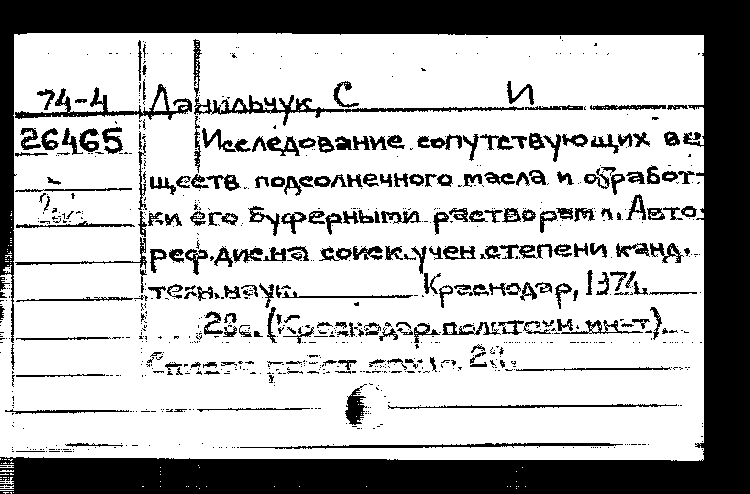 74-4 Данильчук, С И
26465 Исследование сопутствующих ве
ществ подсолнечного масла и обработ-
ки его буферными растворами. Авто
реф.дис.на соиск.учен.степени канд.
техн.наук. Краснодар, 1974.
28с. (Краснодар.политехн.ин-т).
Список работ с. 28.